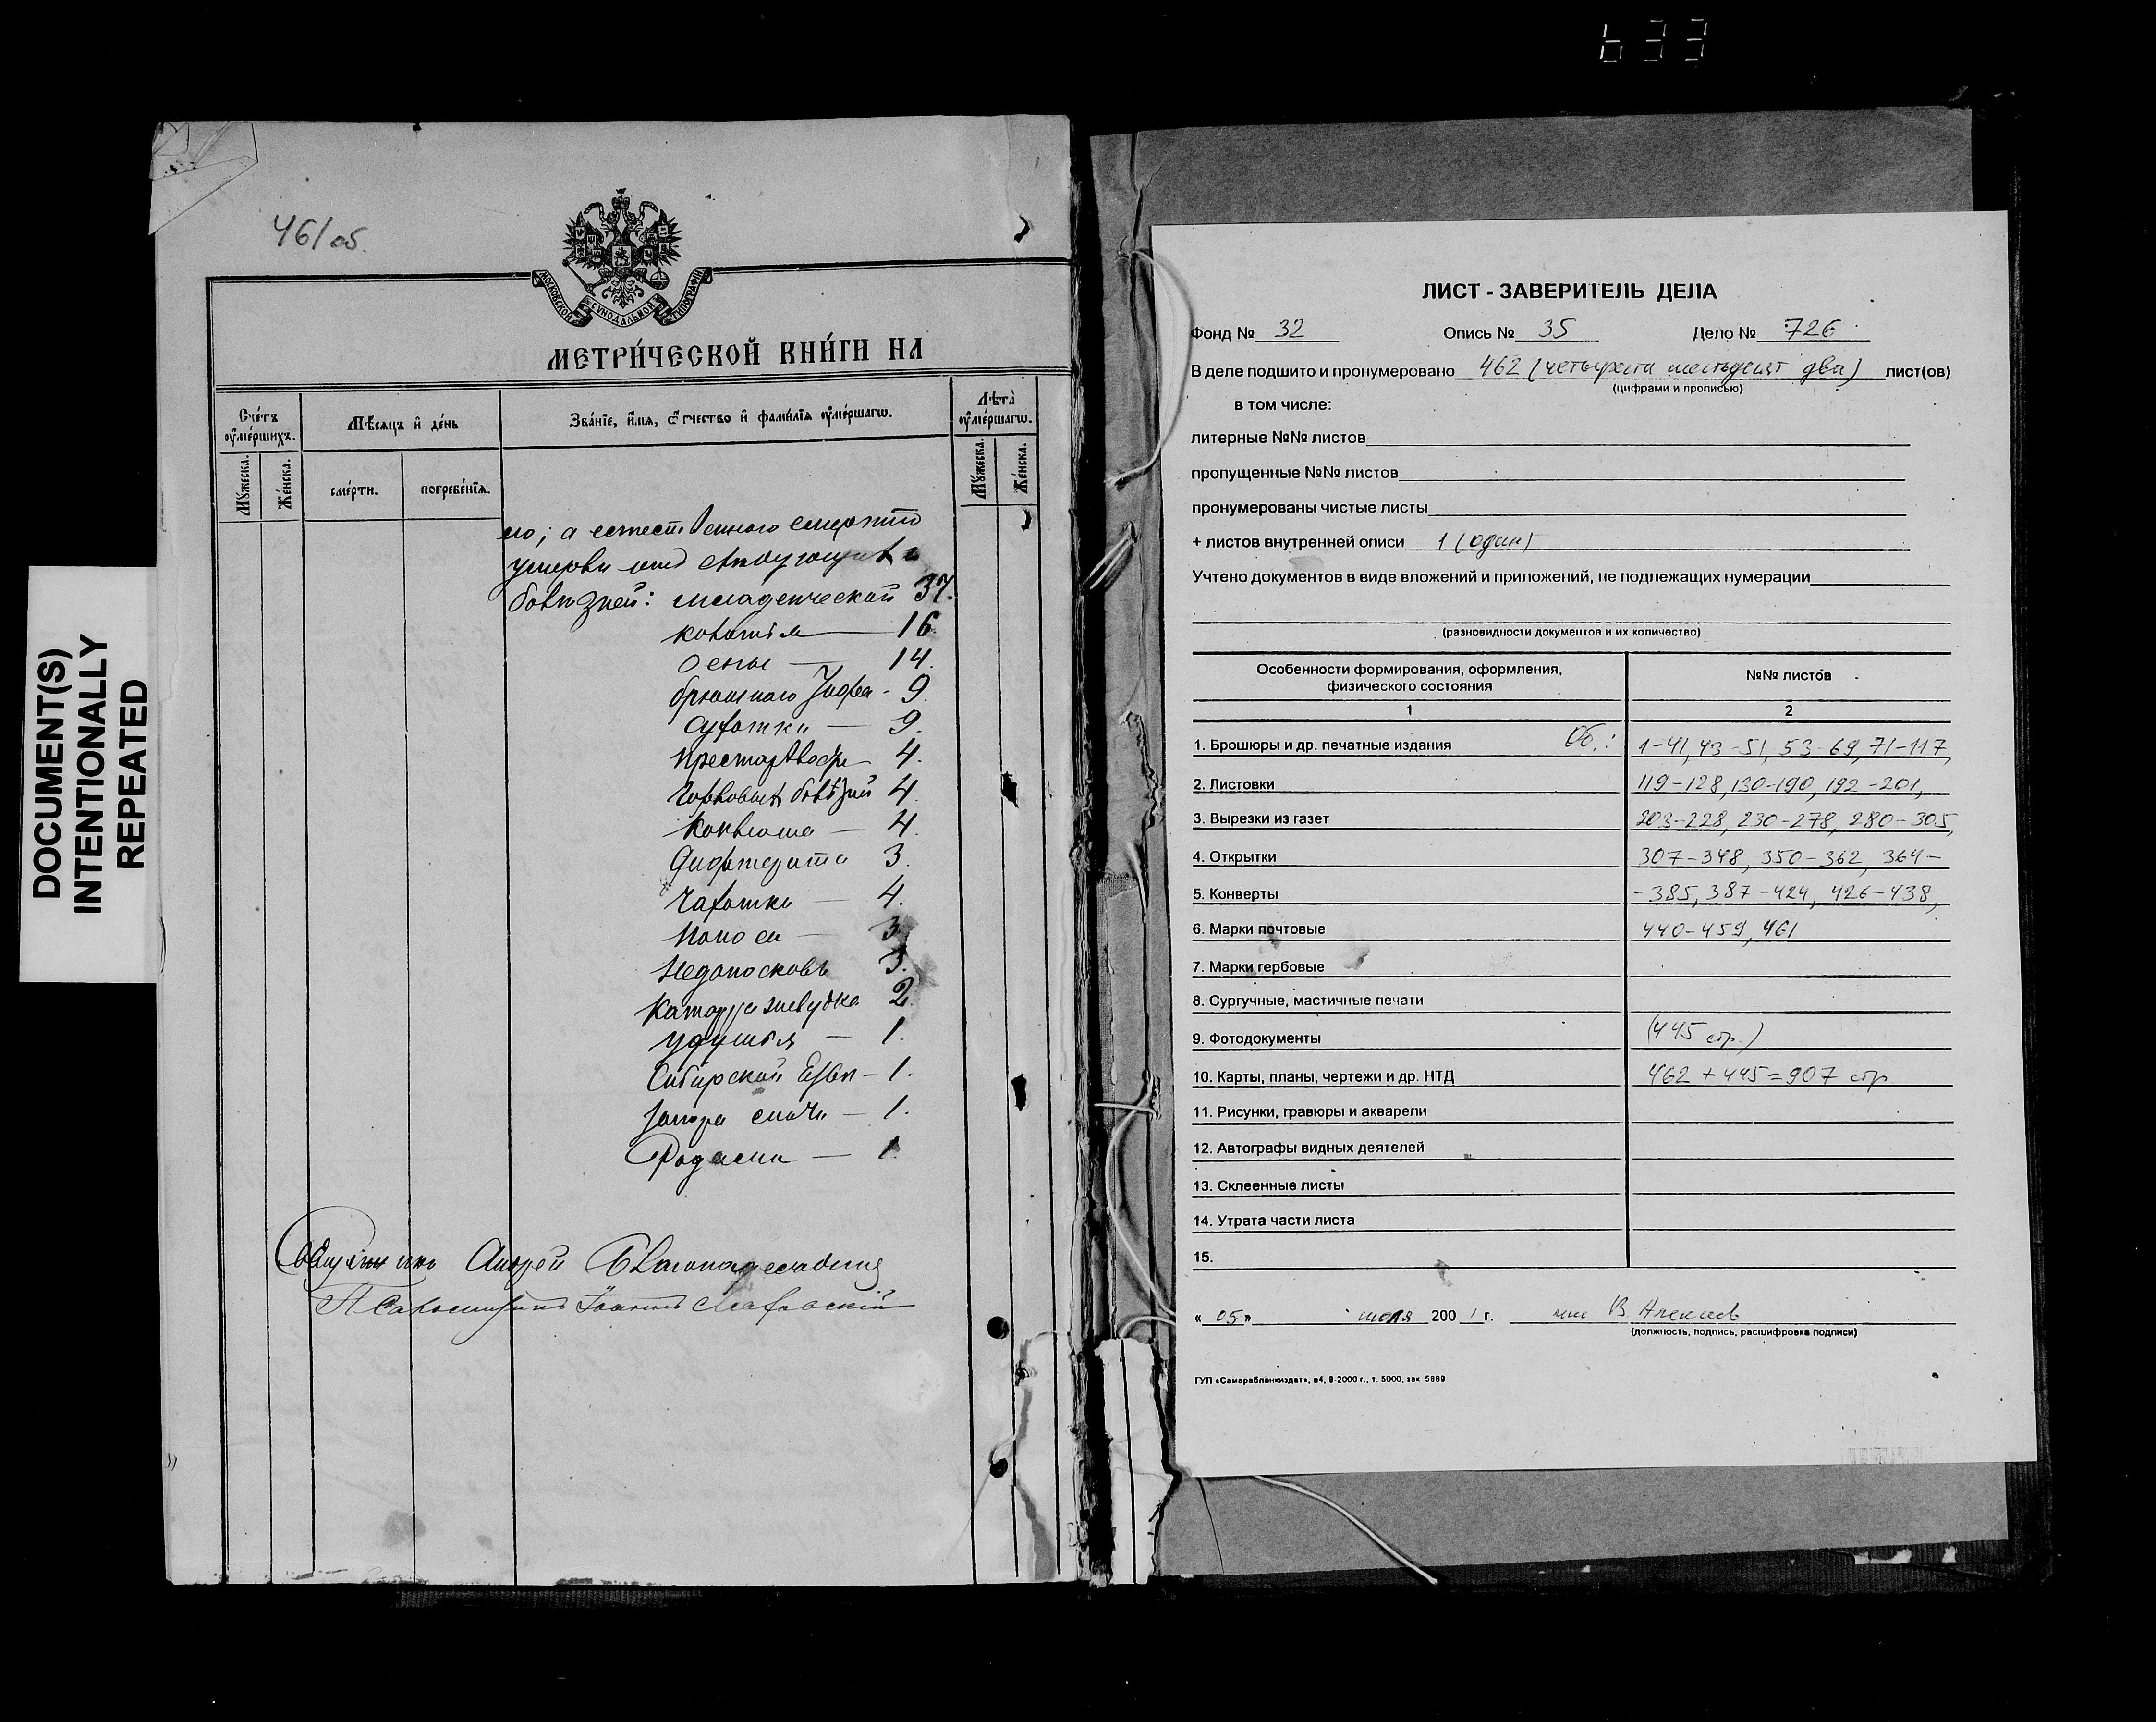 633
DOCUMENT(S)
INTENTIONALLY
REPEATED
461об.
МОСКОВСКОЙ СѴНОДАЛЬНОЙ ТИПОГРАФІИ
МЕТРИ́ЧЕСКОЙ КНИ́ГИ НА
Сче́тъ ᲂу҆ме́ршихъ.
Мѣ́сяцъ и҆ де́нь
Зва́нїе, и҆́мѧ, ѻ҆́тчество и҆ фами́лїѧ ᲂу҆ме́ршагѡ.
Лѣ́та ᲂу҆ме́ршагѡ.
Мꙋ́жеска.
Же́нска.
сме́рти.
погребе́нїѧ.
Мꙋ́жеска.
Же́нска.
но; а естественною смертію
умерви отъ слѣдующихъ
болѣзней: младенческой 37.
колотья — 16.
оспы — 14.
брюшного тифа - 9.
сухотки — 9.
престарѣлости 4.
горловыхъ болѣзней 4.
коклюша — 4.
дифтерита 3.
чахотки — 4.
поноса — 3.
недоносковъ 3.
катарра желудка 2.
удушья — 1.
Сибирской Язвы — 1.
запора мочи — 1.
Родами — 1.
Священникъ Андрей Благонадеждинъ
Псаломщикъ Іоаннъ
ЛИСТ - ЗАВЕРИТЕЛЬ ДЕЛА
Фонд № 32 Опись № 35 Дело № 726
В деле подшито и пронумеровано 462 (четыреста шестьдесят два) лист(ов)
(цифрами и прописью)
в том числе:
литерные №№ листов
пропущенные №№ листов
пронумерованы чистые листы
+ листов внутренней описи 1 (один)
Учтено документов в виде вложений и приложений, не подлежащих нумерации
(разновидности документов и их количество)
Особенности формирования, оформления, физического состояния
№№ листов
1
2
1. Брошюры и др. печатные издания Об.: 1-41, 43-51, 53-69, 71-117,
2. Листовки 119-128, 130-190, 192-201,
3. Вырезки из газет 203-228, 230-278, 280-305,
4. Открытки 307-348, 350-362, 364-
5. Конверты -385, 387-424, 426-438,
6. Марки почтовые 440-459, 461
7. Марки гербовые
8. Сургучные, мастичные печати
9. Фотодокументы (445 стр.)
10. Карты, планы, чертежи и др. НТД 462 + 445 = 907 стр
11. Рисунки, гравюры и акварели
12. Автографы видных деятелей
13. Склеенные листы
14. Утрата части листа
15.
« 05 » июля 2001 г. В Алексеев
(должность, подпись, расшифровка подписи)
ГУП «Самарабланкиздат», а4, 9-2000 г., т. 5000, зак. 5889